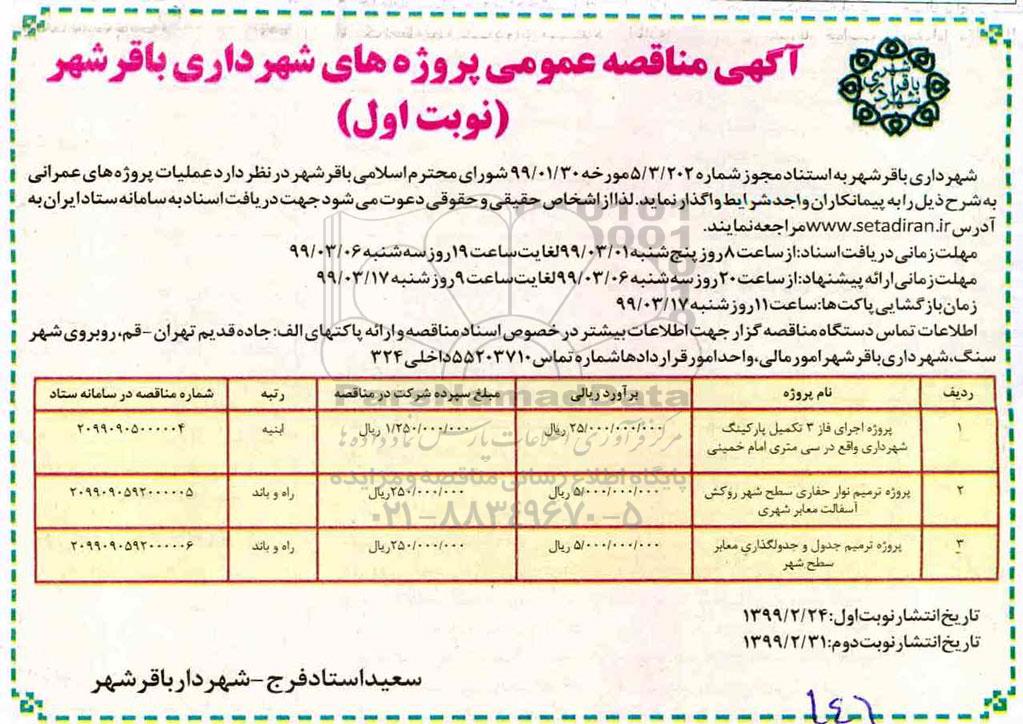 آگهی مناقصه عمومی پروژه های شهرداری باقرشهر
(نوبت اول)
شهرداری باقرشهر
شهرداری باقرشهر به استناد مجوز شماره ۵/۳/۲۰۲ مورخه ۹۹/۰۱/۳۰ شورای محترم اسلامی باقرشهر در نظر دارد عملیات پروژه های عمرانی
به شرح ذیل را به پیمانکاران واجد شرایط واگذار نماید. لذا از اشخاص حقیقی و حقوقی دعوت می شود جهت دریافت اسناد به سامانه ستاد ایران به
آدرس www.setadiran.ir مراجعه نمایند.
مهلت زمانی دریافت اسناد: از ساعت ۸ روز پنج شنبه ۹۹/۰۳/۰۱ لغایت ساعت ۱۹ روز سه شنبه ۹۹/۰۳/۰۶
مهلت زمانی ارائه پیشنهاد: از ساعت ۲۰ روز سه شنبه ۹۹/۰۳/۰۶ لغایت ساعت ۹ روز شنبه ۹۹/۰۳/۱۷
زمان بازگشایی پاکت ها: ساعت ۱۱ روز شنبه ۹۹/۰۳/۱۷
اطلاعات تماس دستگاه مناقصه گزار جهت اطلاعات بیشتر در خصوص اسناد مناقصه و ارائه پاکتهای الف: جاده قدیم تهران - قم، روبروی شهر
سنگ، شهرداری باقرشهر امور مالی، واحد امور قراردادها شماره تماس ۵۵۲۰۳۷۱۰ داخلی ۳۲۴
ردیف نام پروژه برآورد ریالی مبلغ سپرده شرکت در مناقصه رتبه شماره مناقصه در سامانه ستاد
۱ پروژه اجرای فاز ۳ تکمیل پارکینگ ۲۵/۰۰۰/۰۰۰/۰۰۰ ریال ۱/۲۵۰/۰۰۰/۰۰۰ ریال ابنیه ۲۰۹۹۰۹۰۵۰۰۰۰۰۴
شهرداری واقع در سی متری امام خمینی
۲ پروژه ترمیم نوار حفاری سطح شهر روکش ۵/۰۰۰/۰۰۰/۰۰۰ ریال ۲۵۰/۰۰۰/۰۰۰ ریال راه و باند ۲۰۹۹۰۹۰۵۹۲۰۰۰۰۰۵
آسفالت معابر شهری
۳ پروژه ترمیم جدول و جدولگذاری معابر ۵/۰۰۰/۰۰۰/۰۰۰ ریال ۲۵۰/۰۰۰/۰۰۰ ریال راه و باند ۲۰۹۹۰۹۰۵۹۲۰۰۰۰۰۶
سطح شهر
ParsNamadData
مرکز فرآوری اطلاعات پارس نماد داده ها
پایگاه اطلاع رسانی مناقصه و مزایده
۰۲۱-۸۸۳۴۹۶۷۰-۵
تاریخ انتشار نوبت اول: ۱۳۹۹/۲/۲۴
تاریخ انتشار نوبت دوم: ۱۳۹۹/۲/۳۱
سعید استاد فرج - شهردار باقرشهر